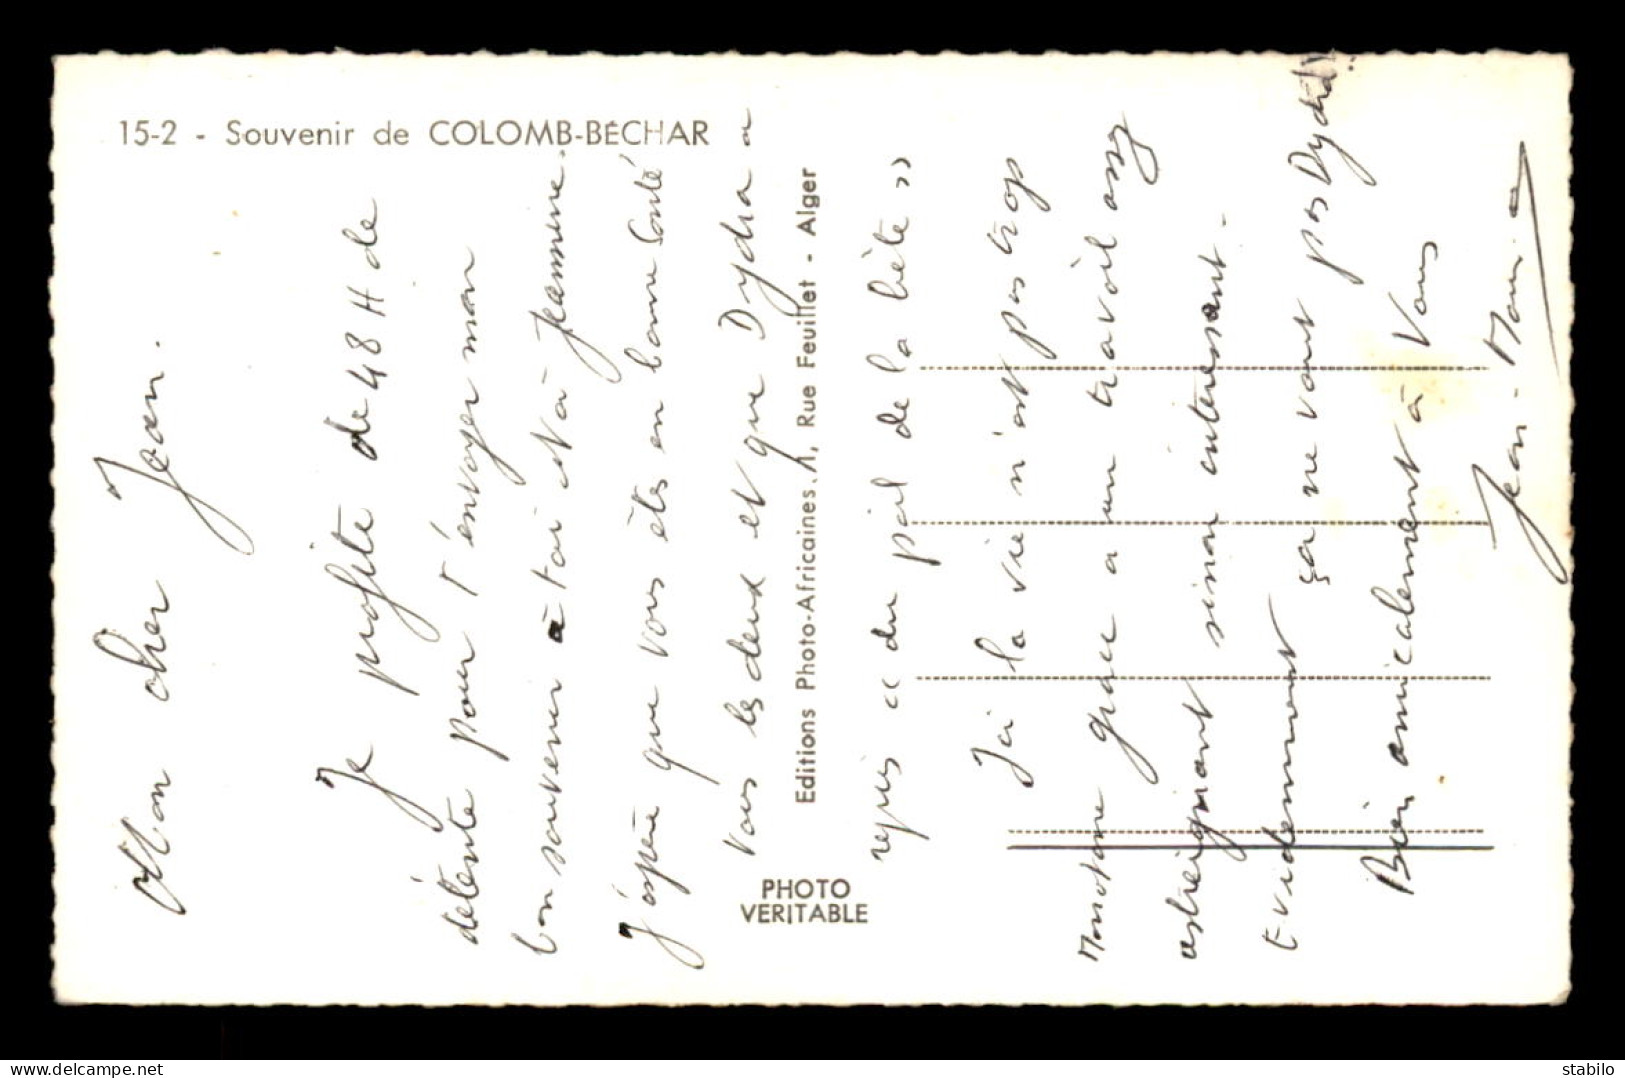 15-2 - Souvenir de COLOMB-BÉCHAR
Mon cher Jean.
Je profite de 48 H de
détente pour t'envoyer mon
bon souvenir à toi et à Jeannine.
J'espère que vous êtes en bonne santé
tous les deux et que Dydra a
repris « du poil de la bête »
Ici la vie n'est pas trop
monotone grace a un travail assez
astreignant sinon intéressant.
Evidemment ça ne vaut pas Dydra !!
Bien amicalement à Vous
Jean-Marie
Editions Photo-Africaines, Rue Feuillet - Alger
PHOTO
VERITABLE
stabilo